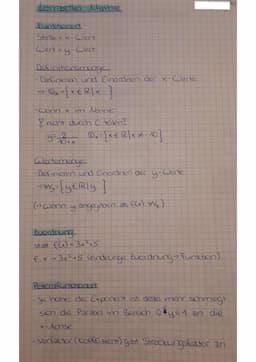 Lernzettel Mathe
Funktionen
Stelle = x-Wert
Wert = y-Wert
Definitionsmenge
- Definieren und Einordnen der x-Werte
→ D = {x ∈ R | x }
- wenn x im Nenner
nicht durch 0 teilen!
Wertemenge
- Definieren und Einordnen der y-Werte
→ W = {y ∈ R | y }
Zuordnung
statt f(x) = 3x²+5
f: x → 3x²+5 (eindeutige Zuordnung → Funktion)
Potenzfunktionen
- Je höher der Exponent ist desto mehr schmiegt
sich die Parabel im Bereich 0 y 1 an die
x-Achse
- Vorfaktor (Koeffizient) gibt Streckungsfaktor an